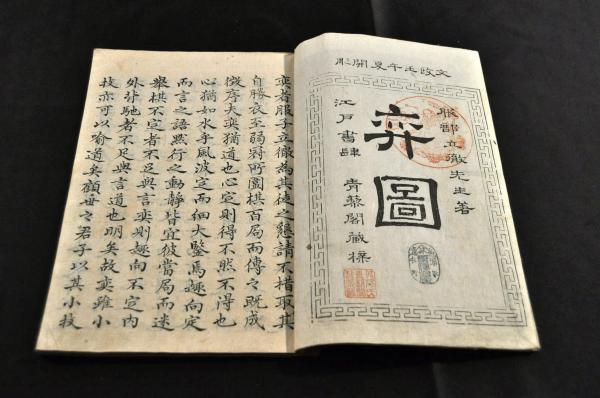 文政壬午夏開彫
服部立徹先生著
弈圖
江戸書肆 青藜閣藏梓
奕者服子立徹為其徒之懇請不措取其
自勝衣至弱冠所圍棋百局而傳之既成
徴序夫奕猶道也心定則得不然不得也
心猶如水乎風波定而細大鑒焉趣向定
而言之語黙行之動静皆宜彼當局而迷
舉棋不定者不足與言奕則趣向不定内
外馳者不足與言道也明矣故奕雖小
技亦可以喻道矣顧世之君子以其小技